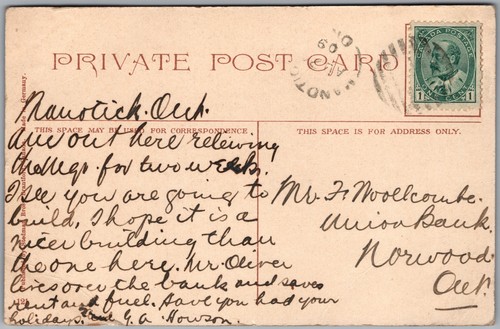 PRIVATE POST CARD
CANADA POSTAGE
1 1
MANOTICK
ONT
09
THIS SPACE MAY BE USED FOR CORRESPONDENCE
THIS SPACE IS FOR ADDRESS ONLY.
Manotick. Ont.
Am out here relieving
the Mgr. for two weeks.
I see you are going to
build, I hope it is a
nicer building than
the one here. Mr. Oliver
lives over the bank and saves
rent and fuel. Have you had your
holidays. G. A. Howson.
Mr. F. Woollcombe.
Union Bank,
Norwood
Ont.
Germany.